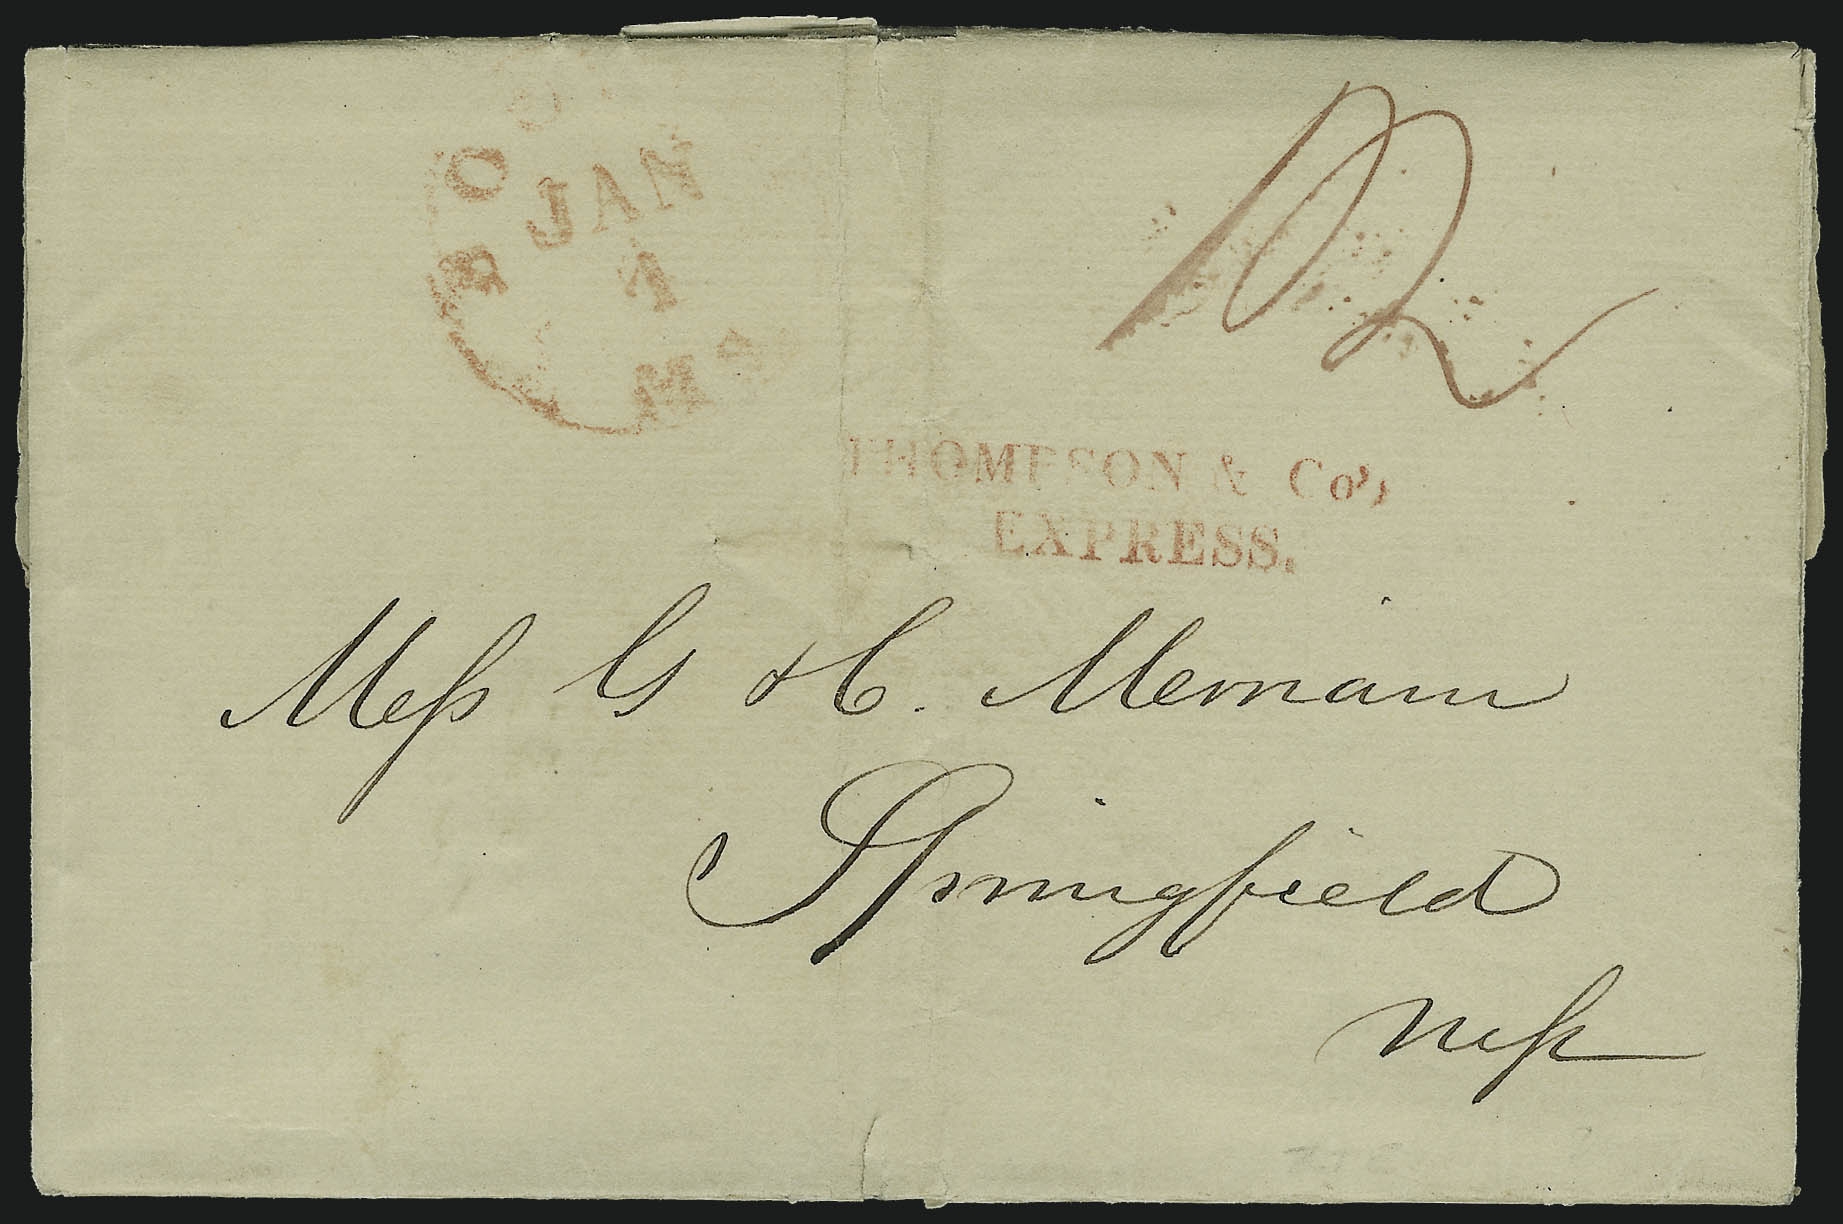 JAN
1
THOMPSON & Co's
EXPRESS.
12
Mess G & C. Merriam
Springfield
Mass